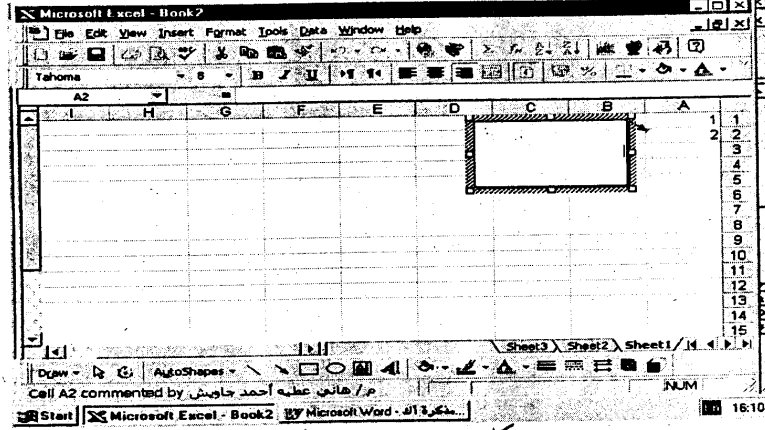 Microsoft Excel - Book2
File Edit View Insert Format Tools Data Window Help
Tahoma 8 B I U
A2 =
I H G F E D C B A
1 1
2 2
3
4
5
6
7
8
9
10
11
12
13
14
15
Sheet3 Sheet2 Sheet1
Draw AutoShapes
Cell A2 commented by م/ هاني عطيه أحمد جاويش NUM
Start Microsoft Excel - Book2 Microsoft Word - مذكرة ال... 16:10